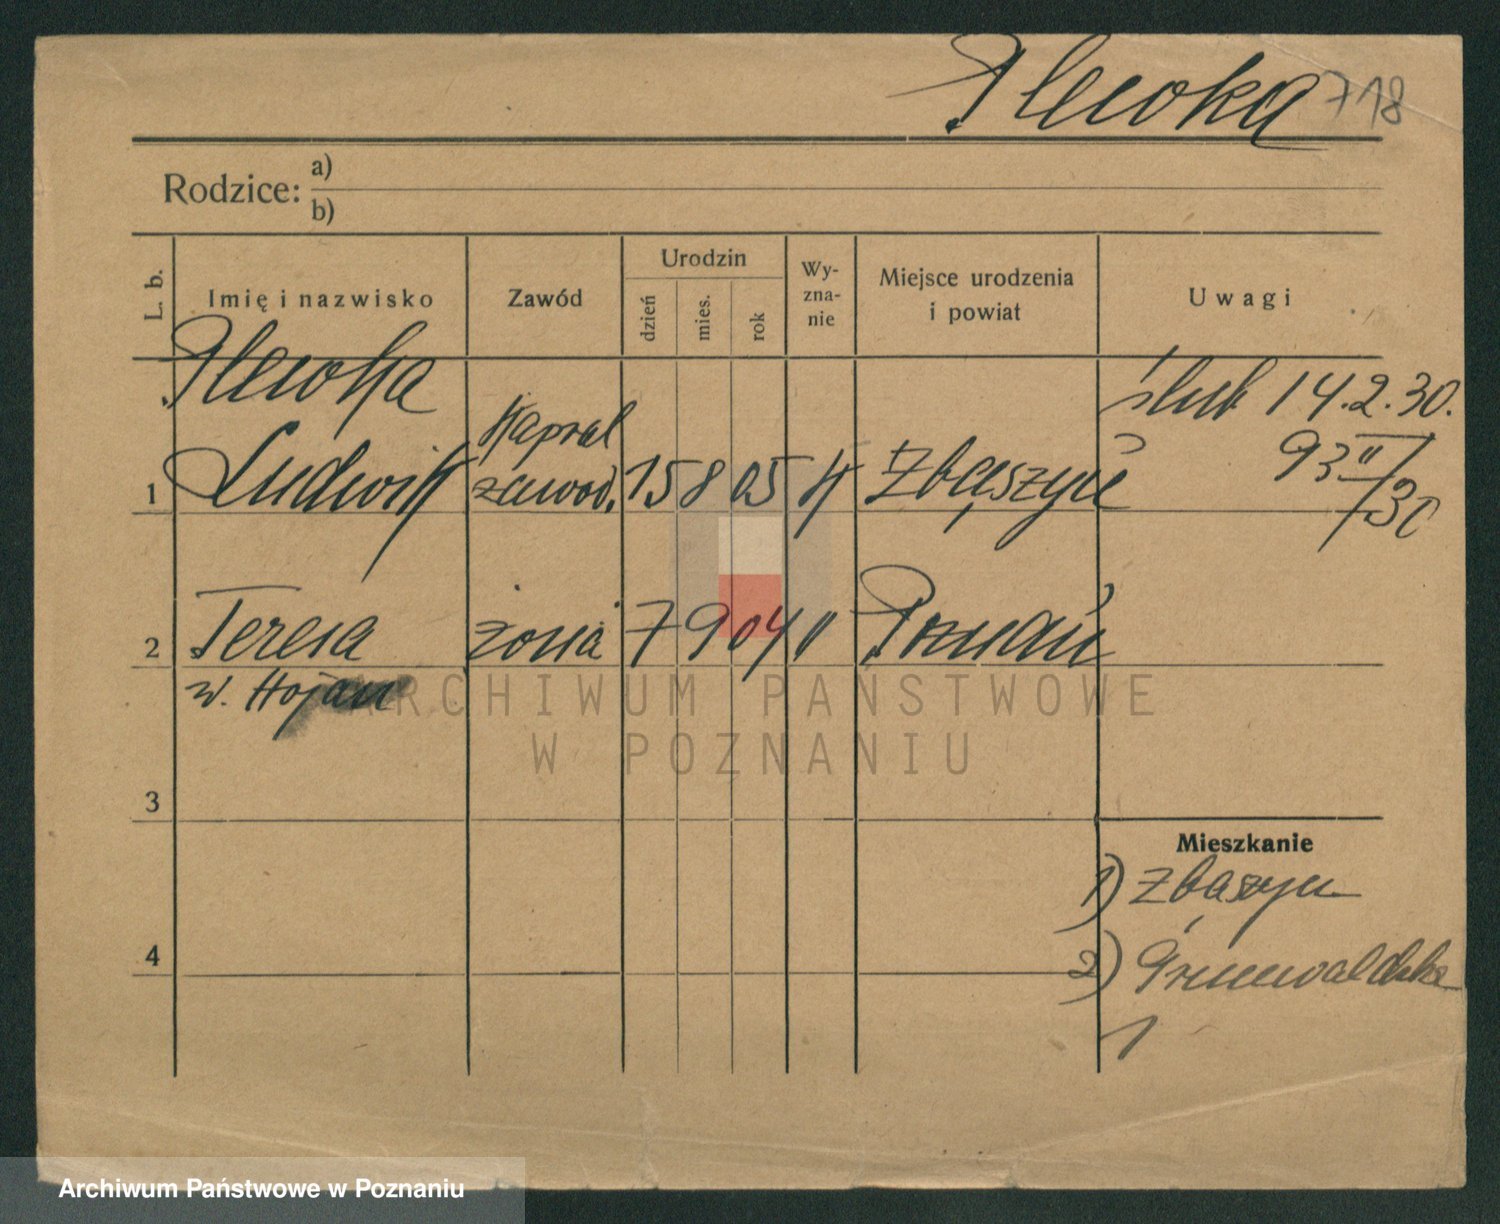 Plewka 718
Rodzice: a)
b)
L. b.
Imię i nazwisko
Zawód
Urodzin
dzień
mies.
rok
Wy-
zna-
nie
Miejsce urodzenia
i powiat
Uwagi
Plewka
Kapral
ślub 14.2.30.
1 Ludwik zawod. 15 8 05 K Zbąszyń
93 II/30
2 Teresa żona 7 9 04 " Poznań
w. Hojan
ARCHIWUM PAŃSTWOWE
W POZNANIU
3
Mieszkanie
1) Zbąszyń
4
2) Grunwaldzka
1
Archiwum Państwowe w Poznaniu